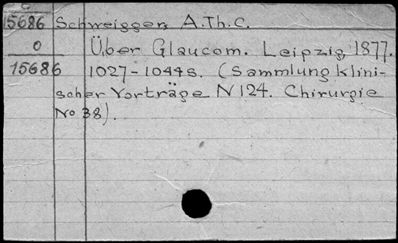 C
15686 Schweigger A.Th.C.
0 Über Glaucom. Leipzig 1877.
15686 1027-1044s. (Sammlung klini-
scher Vorträge N 124. Chirurgie
No 38).